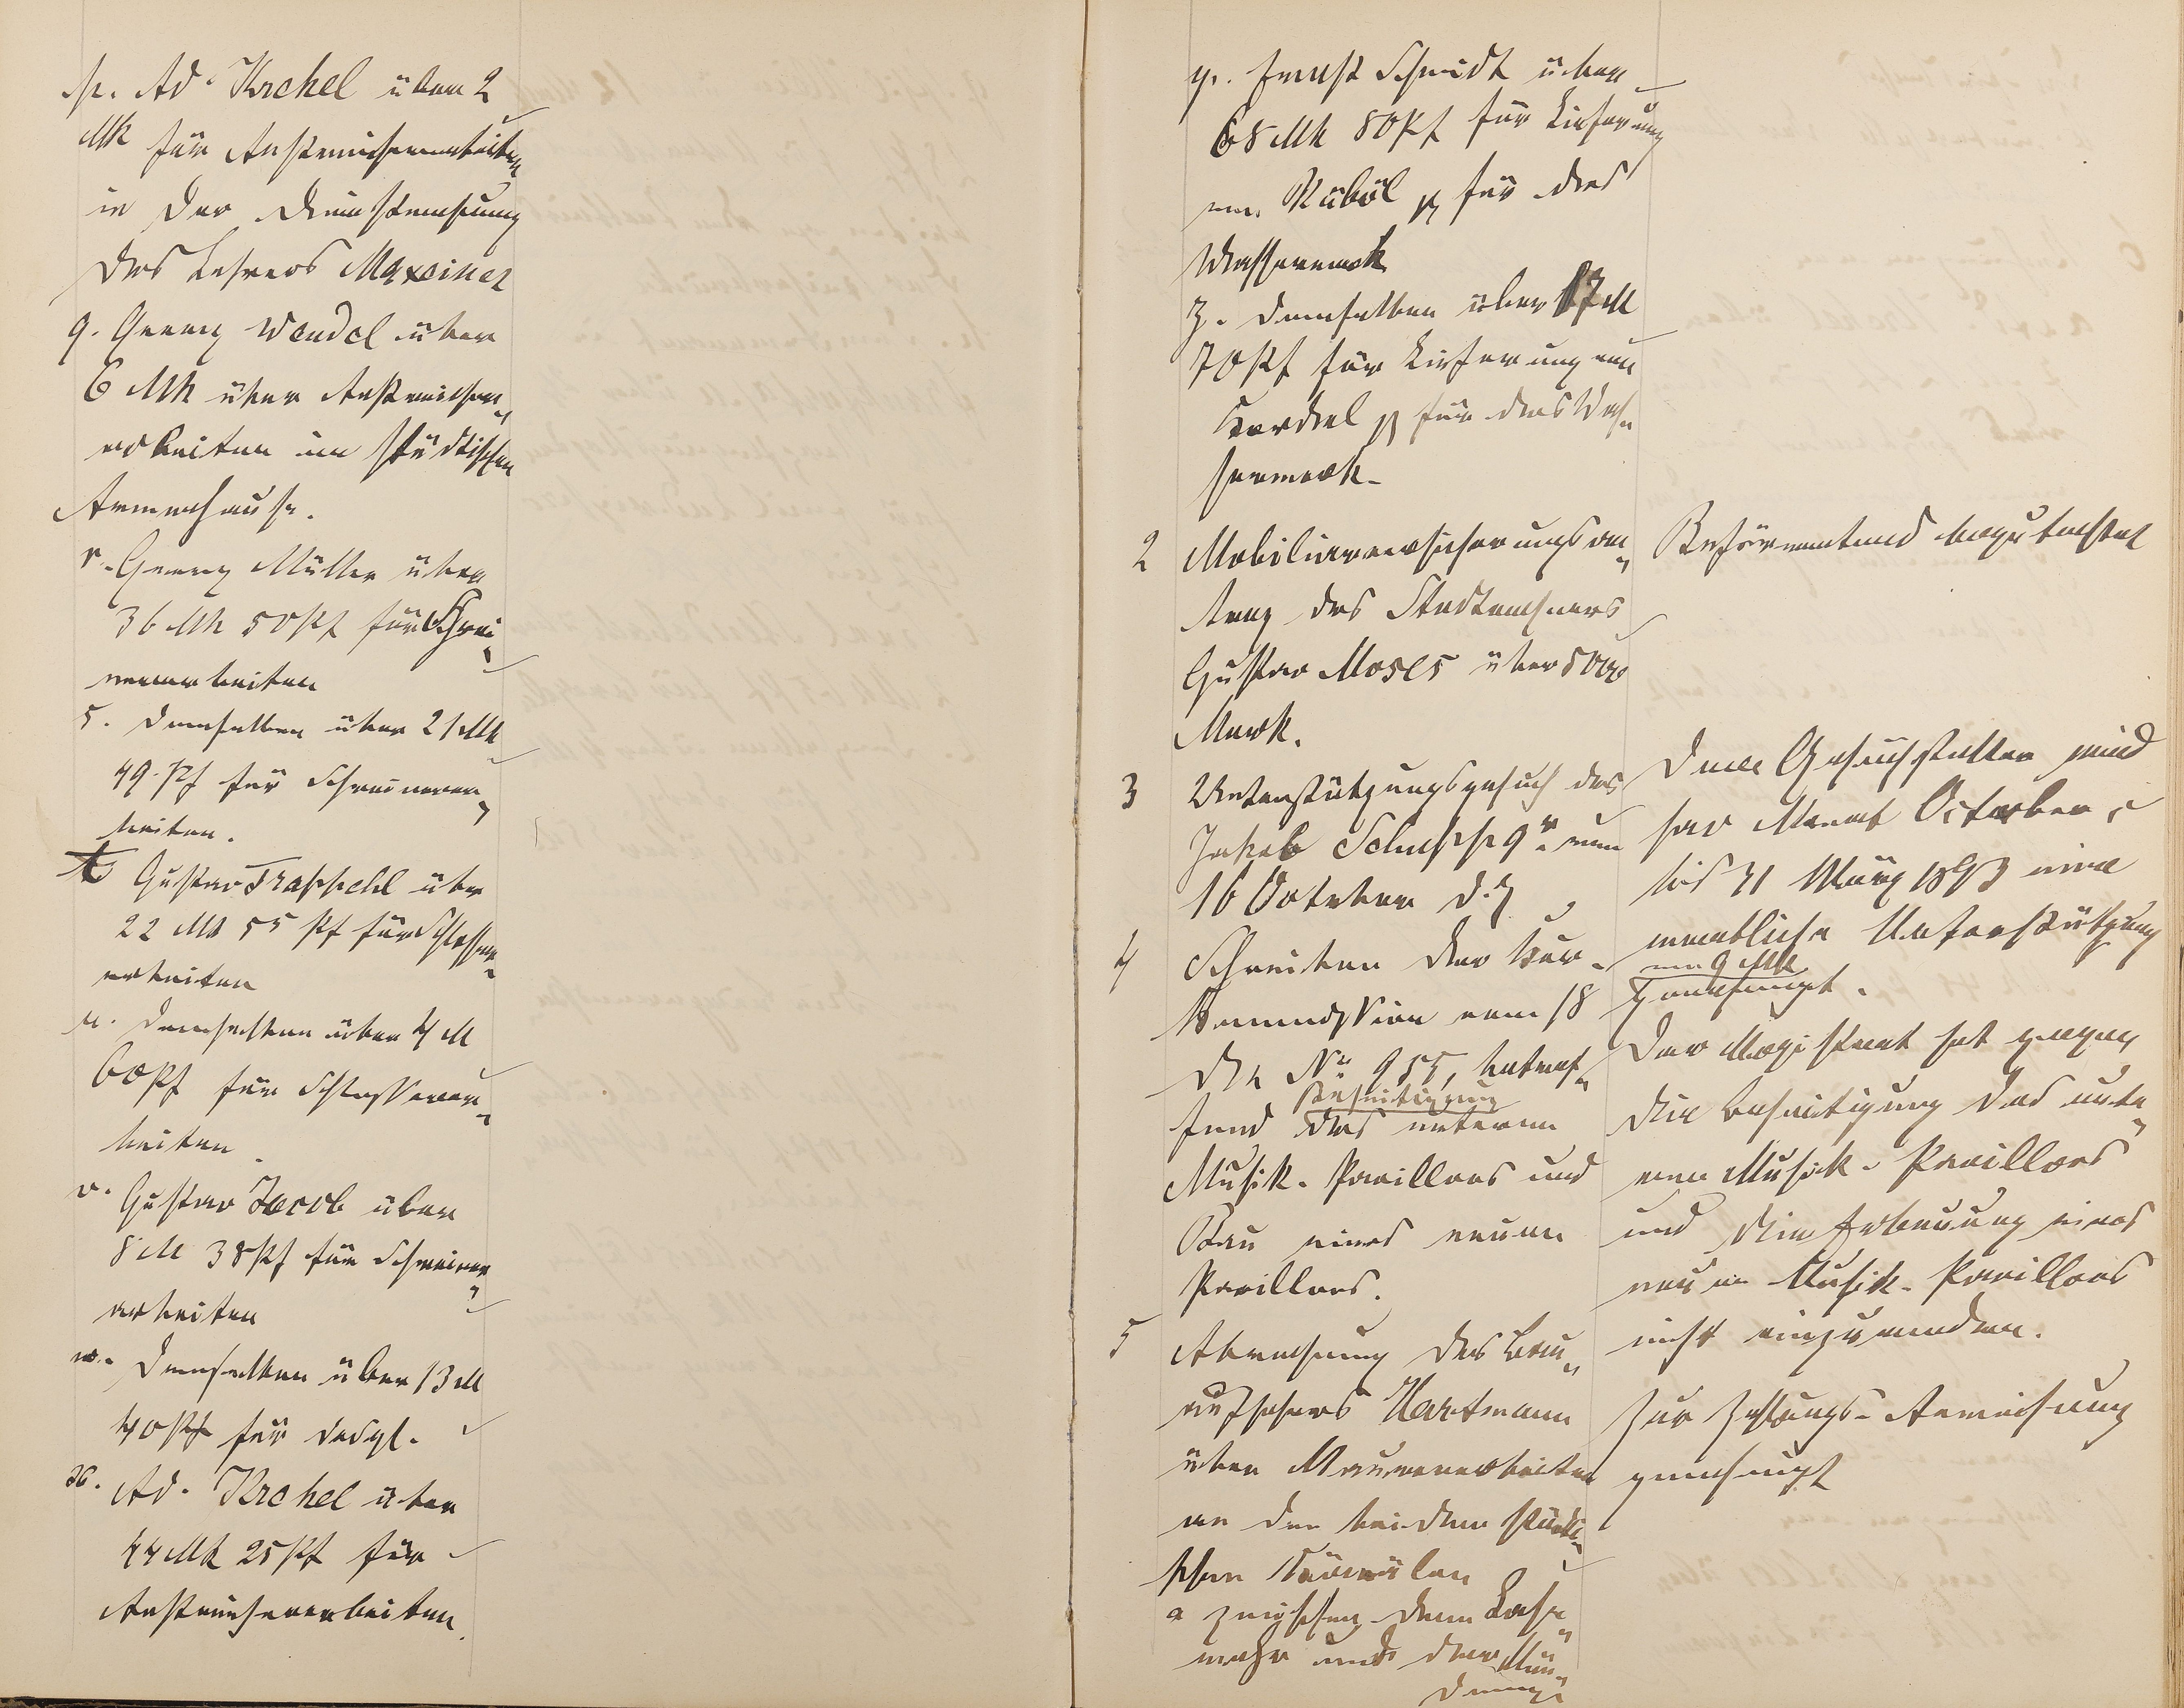 p. Ad. Krekel über 2
Mk für Anstreicherarbeiten
in der Dienstwohnung
des Lehrers Maxeiner
q. Georg Wendel über
6 Mk über Anstreicher-
arbeiten im städtischen
Armenhause.
r. Georg Müller über
36 Mk 50 Pf für Schrei-
nerarbeiten
s. Demselben über 21 Mk
49 Pf für Schreinerar-
beiten.
t Gustav Trappehl über
22 Mk 55 Pf für Schlosser-
arbeiten
u. Demselben über 4 M
60 Pf für Schlosserar-
beiten
v. Gustav Jacob über
8 M 38 Pf für Schreiner-
arbeiten
w. Demselben über 13 M
40 Pf für desgl.
x. Ad. Krekel über
44 Mk 25 Pf für
Anstreicherarbeiten.
y. Ernst Schmidt über
68 Mk 80 Pf für Lieferung
von Rüböl pp für das
Wasserwerk
z. Demselben über 17 M
70 Pf für Lieferung von
Kordel pp für das Was-
serwerk.
2 Mobiliarversicherungsan-
trag des Stadtrechners
Gustav Moses über 5000
Mark.
Befürwortend begutachtet
3 Unterstützungsgesuch des
Jakob Schupp 9r vom
16 October d. J.
Dem Gesuchsteller wird
pro Monat October
bis 31 März 1893 eine
monatliche Unterstützung
von 9 Mk
genehmigt.
4 Schreiben der Kur-
Kommission vom 18
d. Nr. 955, betref-
Beseitigung
fend des unteren
Musik-Pavillons und
Bau eines neuen
Pavillons.
Der Magistrat hat gegen
die Beseitigung des unte-
ren Musik-Pavillons
und die Erbauung eines
neuen Musik-Pavillons
nicht einzuwenden.
5 Abrechnung des Bau-
aufsehers Hartmann
über Maurerarbeiten
an den beiden städti-
schen Kanälen
a zwischen dem
und der Mün-
dung
Zur Zahlungs-Anweisung
genehmigt